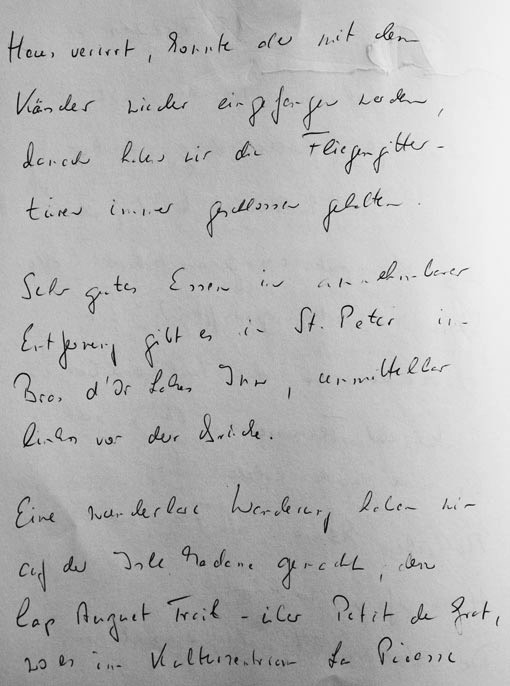 Haus verirrt, konnte der mit dem
Käscher wieder eingefangen werden,
danach haben wir die Fliegengitter-
türen immer geschlossen gehalten.
Sehr gutes Essen in annehmbarer
Entfernung gibt es in St. Peter im
Bras d'Or Lakes Inn, unmittelbar
links vor der Brücke.
Eine wunderbare Wanderung haben wir
auf der Isle Madame gemacht, den
Cap Auguet Trail - über Petit de Grat,
wo es im Kulturzentrum La Picasse